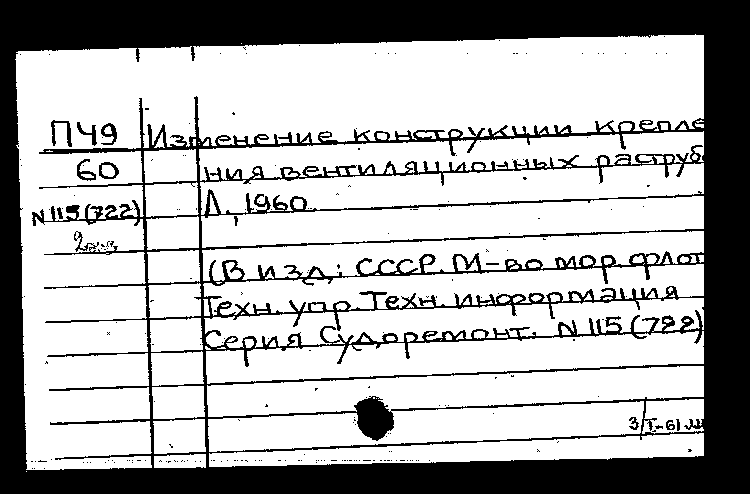 ПЧ9 Изменение конструкции крепле
60 ния вентиляционных раструб
N 115(722) Л., 1960
2 экз
(В изд.: СССР. М-во мор. флот
Техн. упр. Техн. информация
Серия Судоремонт. N 115 (722)
3/I-61